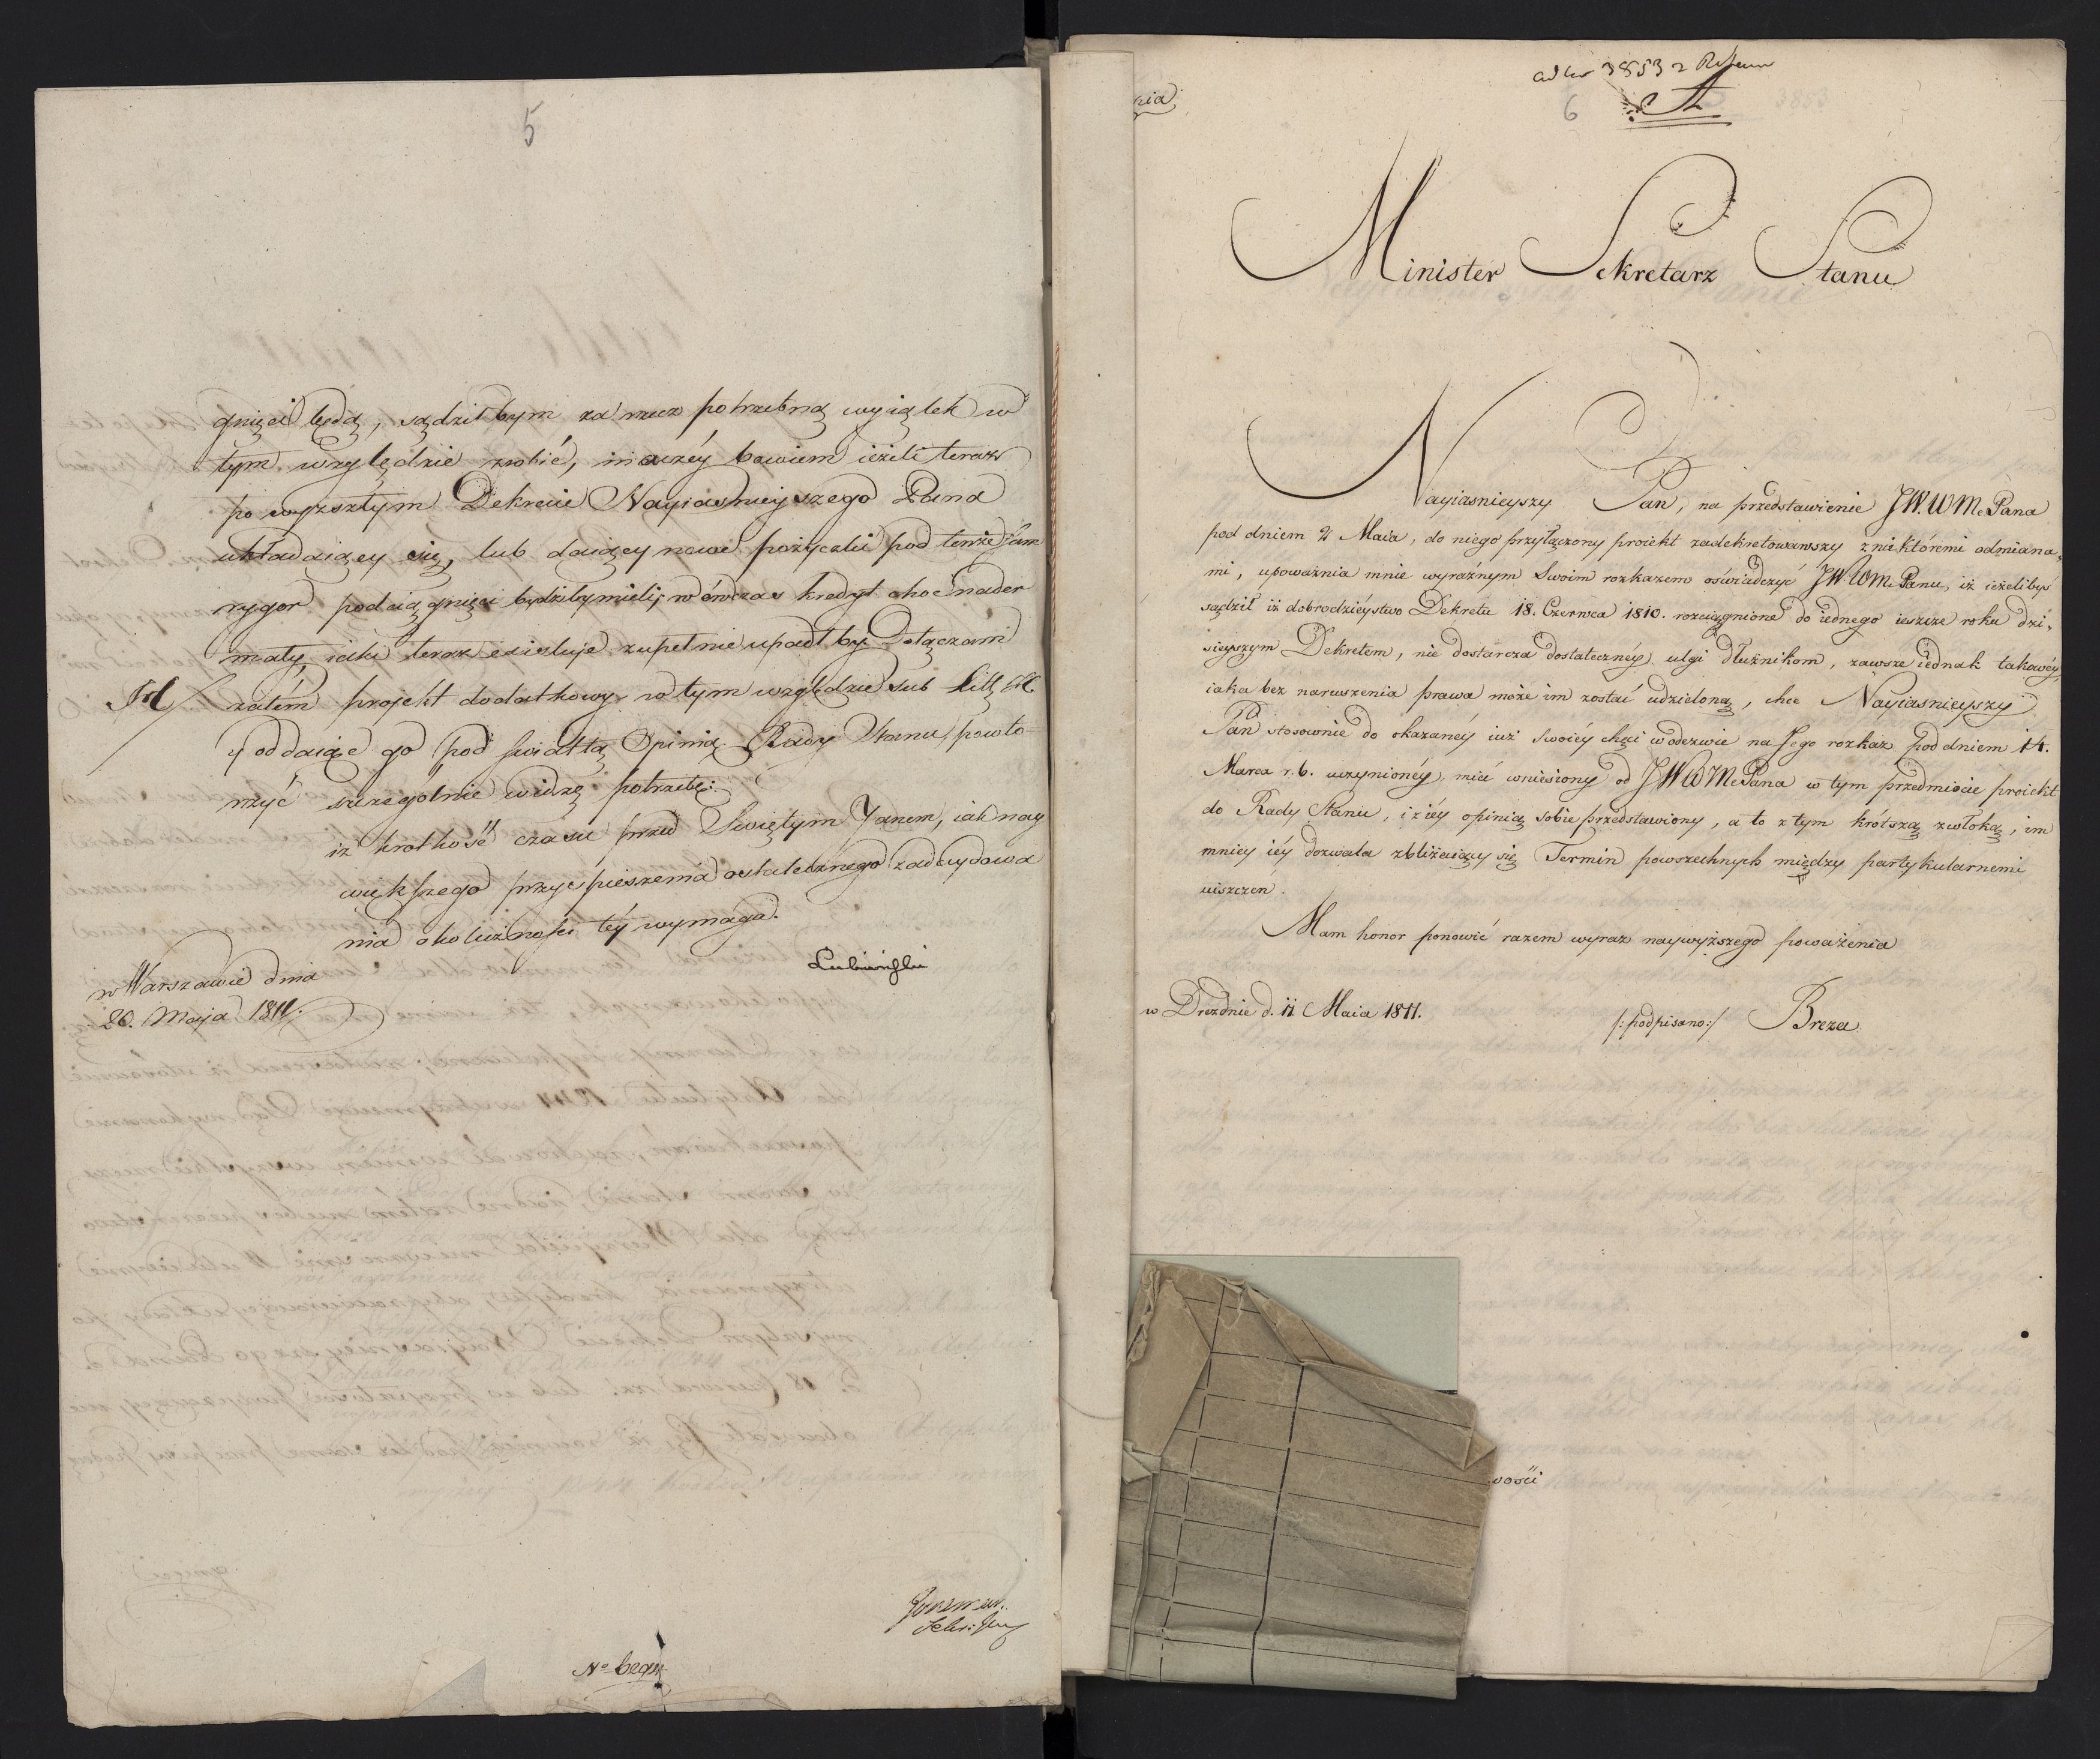 5
gnięci będą, sądziłbym za rzecz potrzebną wyiątek w
tym względzie zrobić, inaczéy bowiem ieżeli teraz
po wyszłym Dekrecie Nayiaśnieyszego Pana
układaiący się, lub daiący nowe pożyczki pod tenże sam
rygor podciągnięci bydźby mieli, wówczas kredyt choć nader
mały, iaki teraz exietuje zupełnie upadł by. Dołączam
zatém projekt dodatkowy w tym względzie sub Litt
y oddaiąc go pod światłą Opinią Rady Stanu, powto-
rzyć szczególnie widzę potrzebę:
iż krótkość czasu przed Swiętym Janem, iak nay
większego przyspieszenia ostatecznego zadecydowa
nia okoliczności téy wymaga.
Lubieński
w Warszawie dnia
20. Maja 1811.
No 6291
nia
3853
6
3853
Minister Sekretarz Stanu
Nayiasnieyszy Pan, na przedstawienie JW. WMc Pana
pod dniem 2 Maia, do niego przyłączony proiekt zadekretowawszy z niektóremi odmiana-
mi, upoważnia mnie wyraźnym Swoim rozkazem oświadczyć JW WMc Panu, iż ieżelibyś
sądził iż dobrodziéystwo Dekretu 18. Czerwca 1810. rozciągnione do iednego ieszcze roku dzi-
sieyszym Dekretem, nie dostarcza dostatecznéy ulgi dłużnikom, zawsze iednak takowéy,
iaka bez naruszenia prawa może im zostać udzieloną, chce Nayiasnieyszy
Pan stosownie do okazanéy iuż swoiéy chęci w odezwie na Jego rozkaz pod dniem 14.
Marca r. b. uczynionéy, mieć wniesiony od JW WMc Pana w tym przedmiocie proiekt
do Rady Stanu, i z iéy opinią sobie przedstawiony, a to z tym krótszą zwłoką, im
mniey iéy dozwala zbliżaiący się Termin powszechnych między partykularnemi
uiszczeń.
Mam honor ponowić razem wyraz naywyższego poważenia
w Dreznie d. 11 Maia 1811.
/:podpisano:/ Breza.
wości